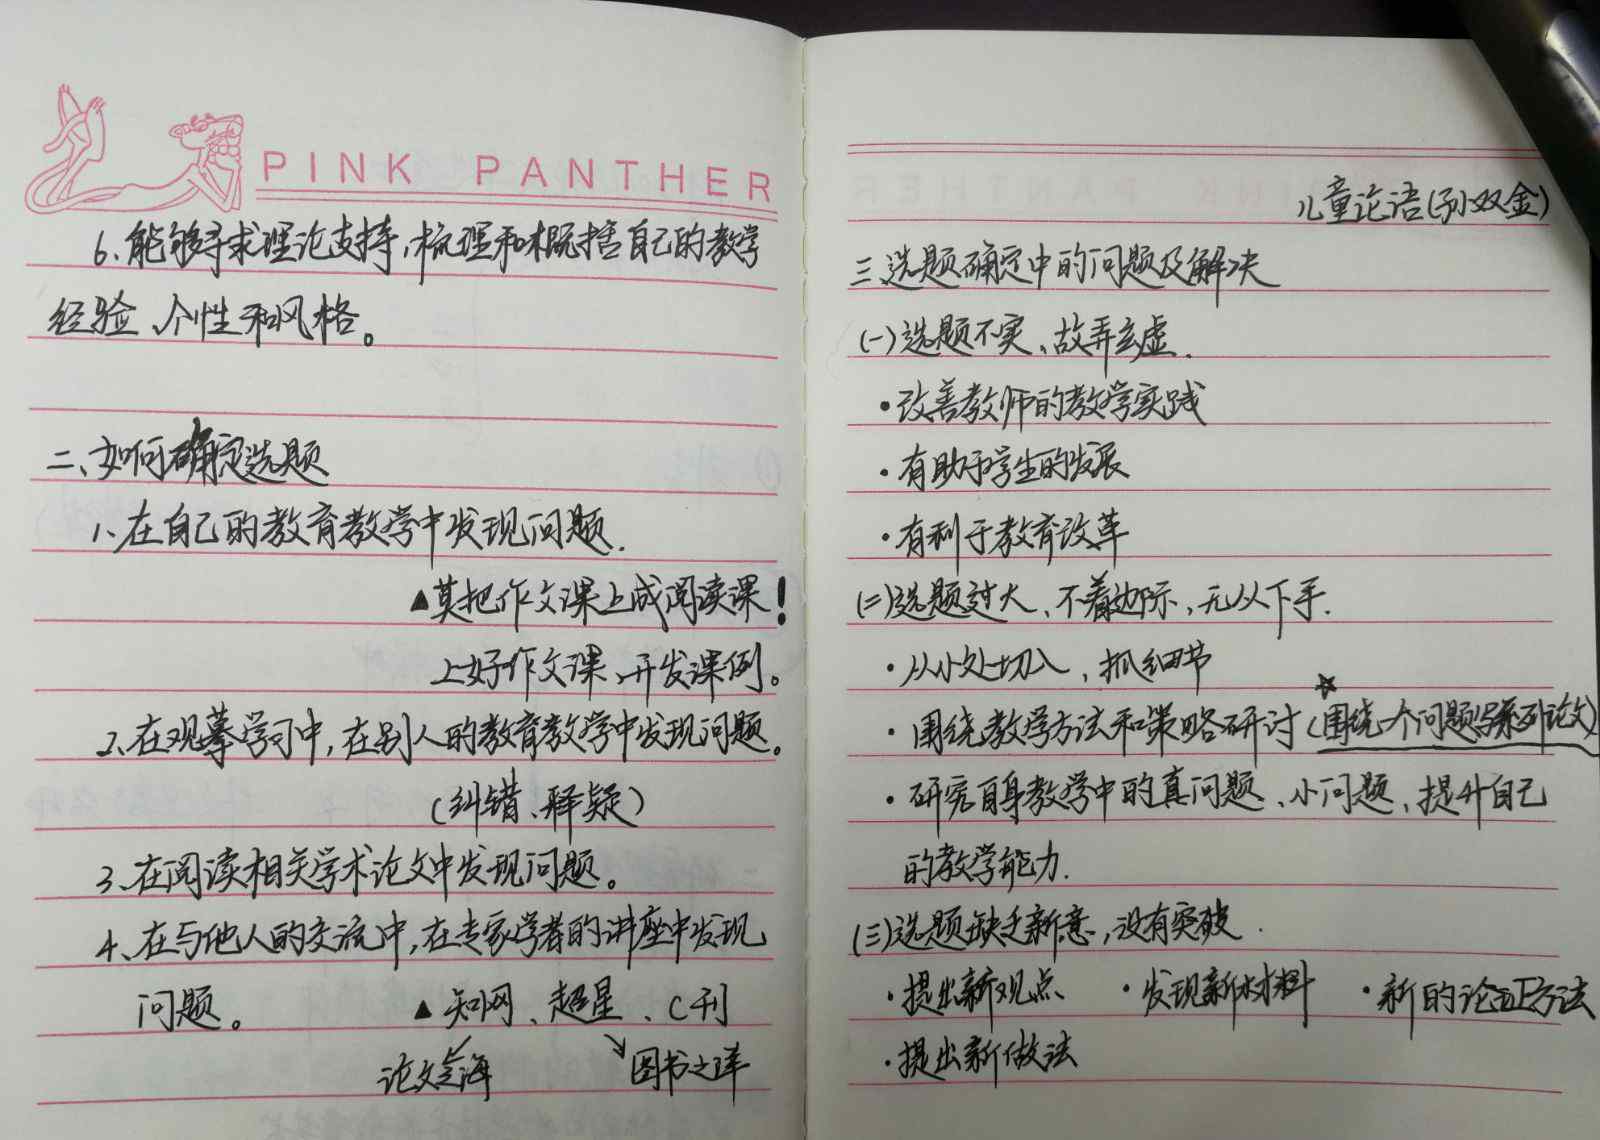 PINK PANTHER
6、能够寻求理论支持,梳理和概括自己的教学
经验、个性和风格。
二、如何确定选题
1、在自己的教育教学中发现问题.
▲莫把作文课上成阅读课!
上好作文课、开发课例。
2、在观摹学习中,在别人的教育教学中发现问题。
(纠错、释疑)
3、在阅读相关学术论文中发现问题。
4、在与他人的交流中,在专家学者的讲座中发现
问题。 ▲知网、超星、C刊
论文之海 图书之库
儿童论语(孙双金)
三、选题确定中的问题及解决
(一)选题不实、故弄玄虚.
·改善教师的教学实践
·有助于学生的发展
·有利于教育改革
(二)选题过大、不着边际,无从下手.
·从小处切入,抓细节
·围绕教学方法和策略研讨(围绕一个问题写系列论文)
·研究自身教学中的真问题、小问题、提升自己
的教学能力.
(三)选题缺乏新意,没有突破.
·提出新观点 ·发现新材料 ·新的论证方法
·提出新做法